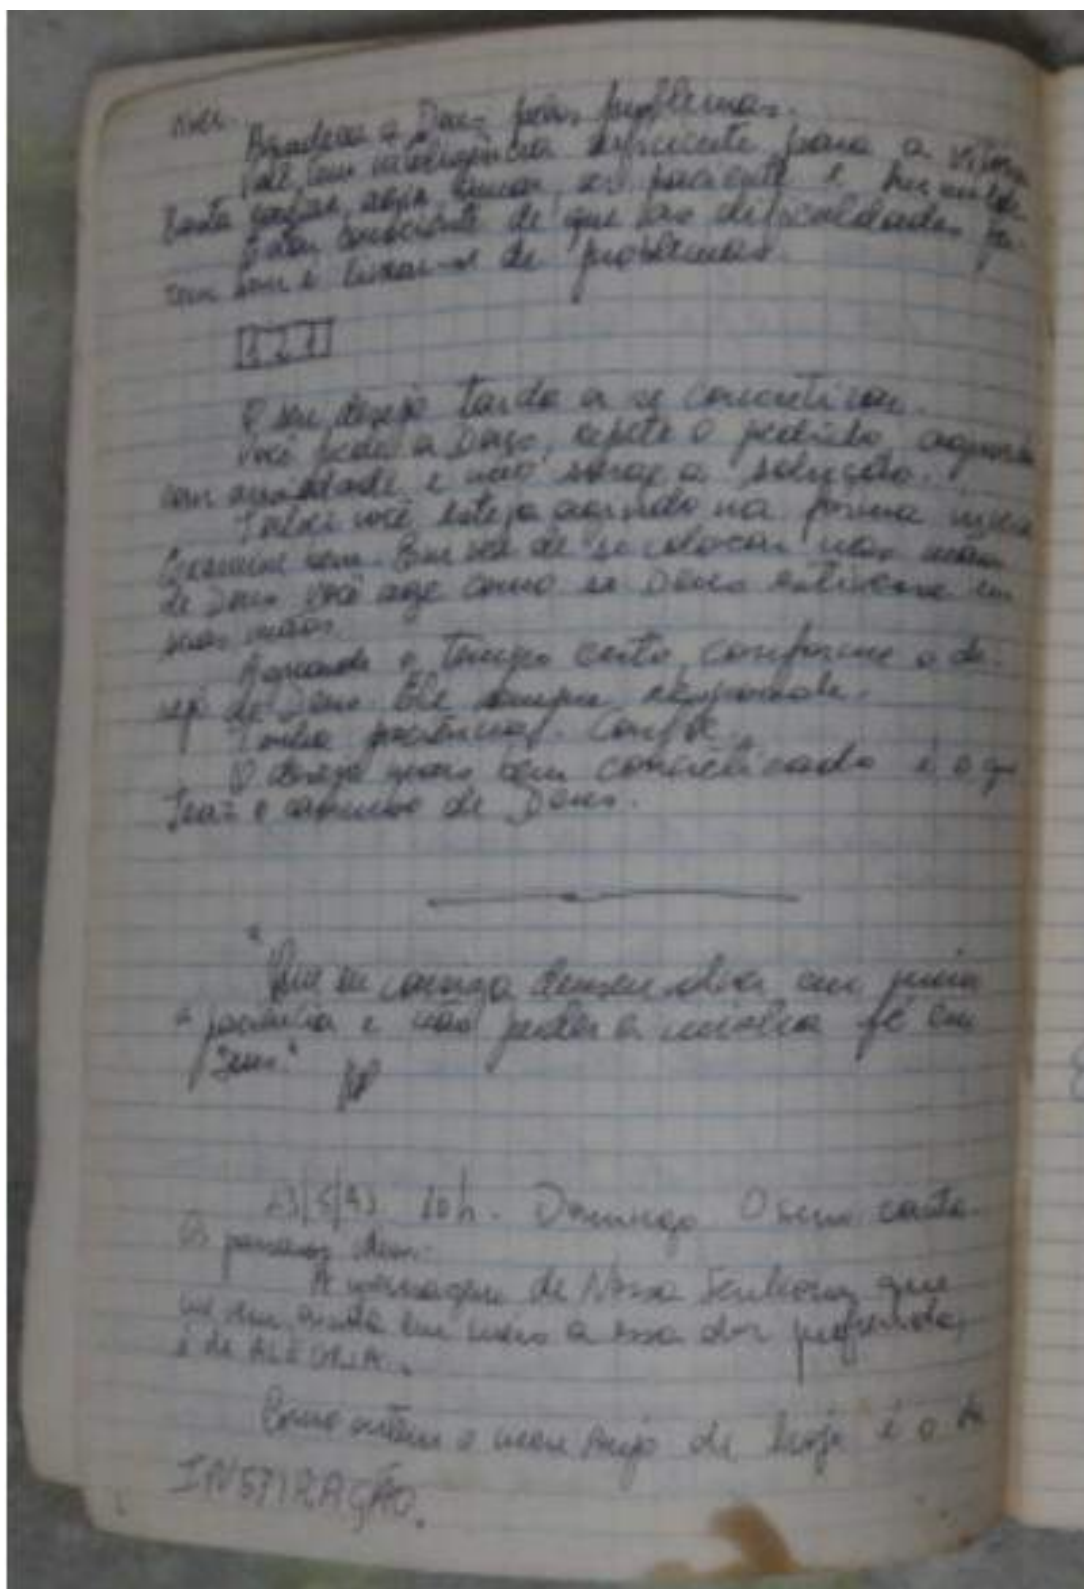 Agradeça a Deus pelos problemas.
Você tem inteligência suficiente para a vitória
basta pensar, agir, buscar, ser paciente e humilde.
Estar consciente de que as dificuldades
de problemas.
321
O seu desejo tarda a se concretizar.
Você pede a Deus, repete o pedido, aguarda
com ansiedade, e não surge a solução.
Talvez você esteja agindo na forma
Examine bem. Em vez de se colocar nas mãos
de Deus você age como se Deus estivesse em
suas mãos.
Aguarde o tempo certo, conforme o de-
sejo de Deus. Ele sempre responde.
Tenha paciência. Confie.
O desejo mais bem concretizado é o q
traz o caminho de Deus.
"Que eu consiga desenvolver em mim
a paciência e não perder a minha fé em
Deus."
23/5/93 10h. Domingo. O sem canta.
Os
A mensagem de Nossa Senhora, que
ainda em meio a essa dor profunda,
é de ALEGRIA.
Como ontem o meu Anjo de hoje é o da
INSPIRAÇÃO.